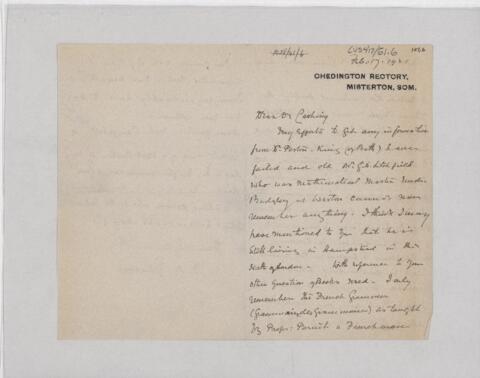 CUSH/17/61.6
Feb. 17. 1921
CHEDINGTON RECTORY,
MISTERTON, SOM.
Dear Dr Cushing
My efforts to get any information
from Dr. Preston King (of Bath) have
failed and old Mr. G. H. Litchfield
who was Mathematical Master under
at Weston cannot now
remember anything. I think I may
have mentioned to you that he is
still living in Hampstead in the
North of London. With reference to your
other question of Books used. I only
remember the French Grammar
(Grammaire des Grammaires) as taught
by Profs: a Frenchman